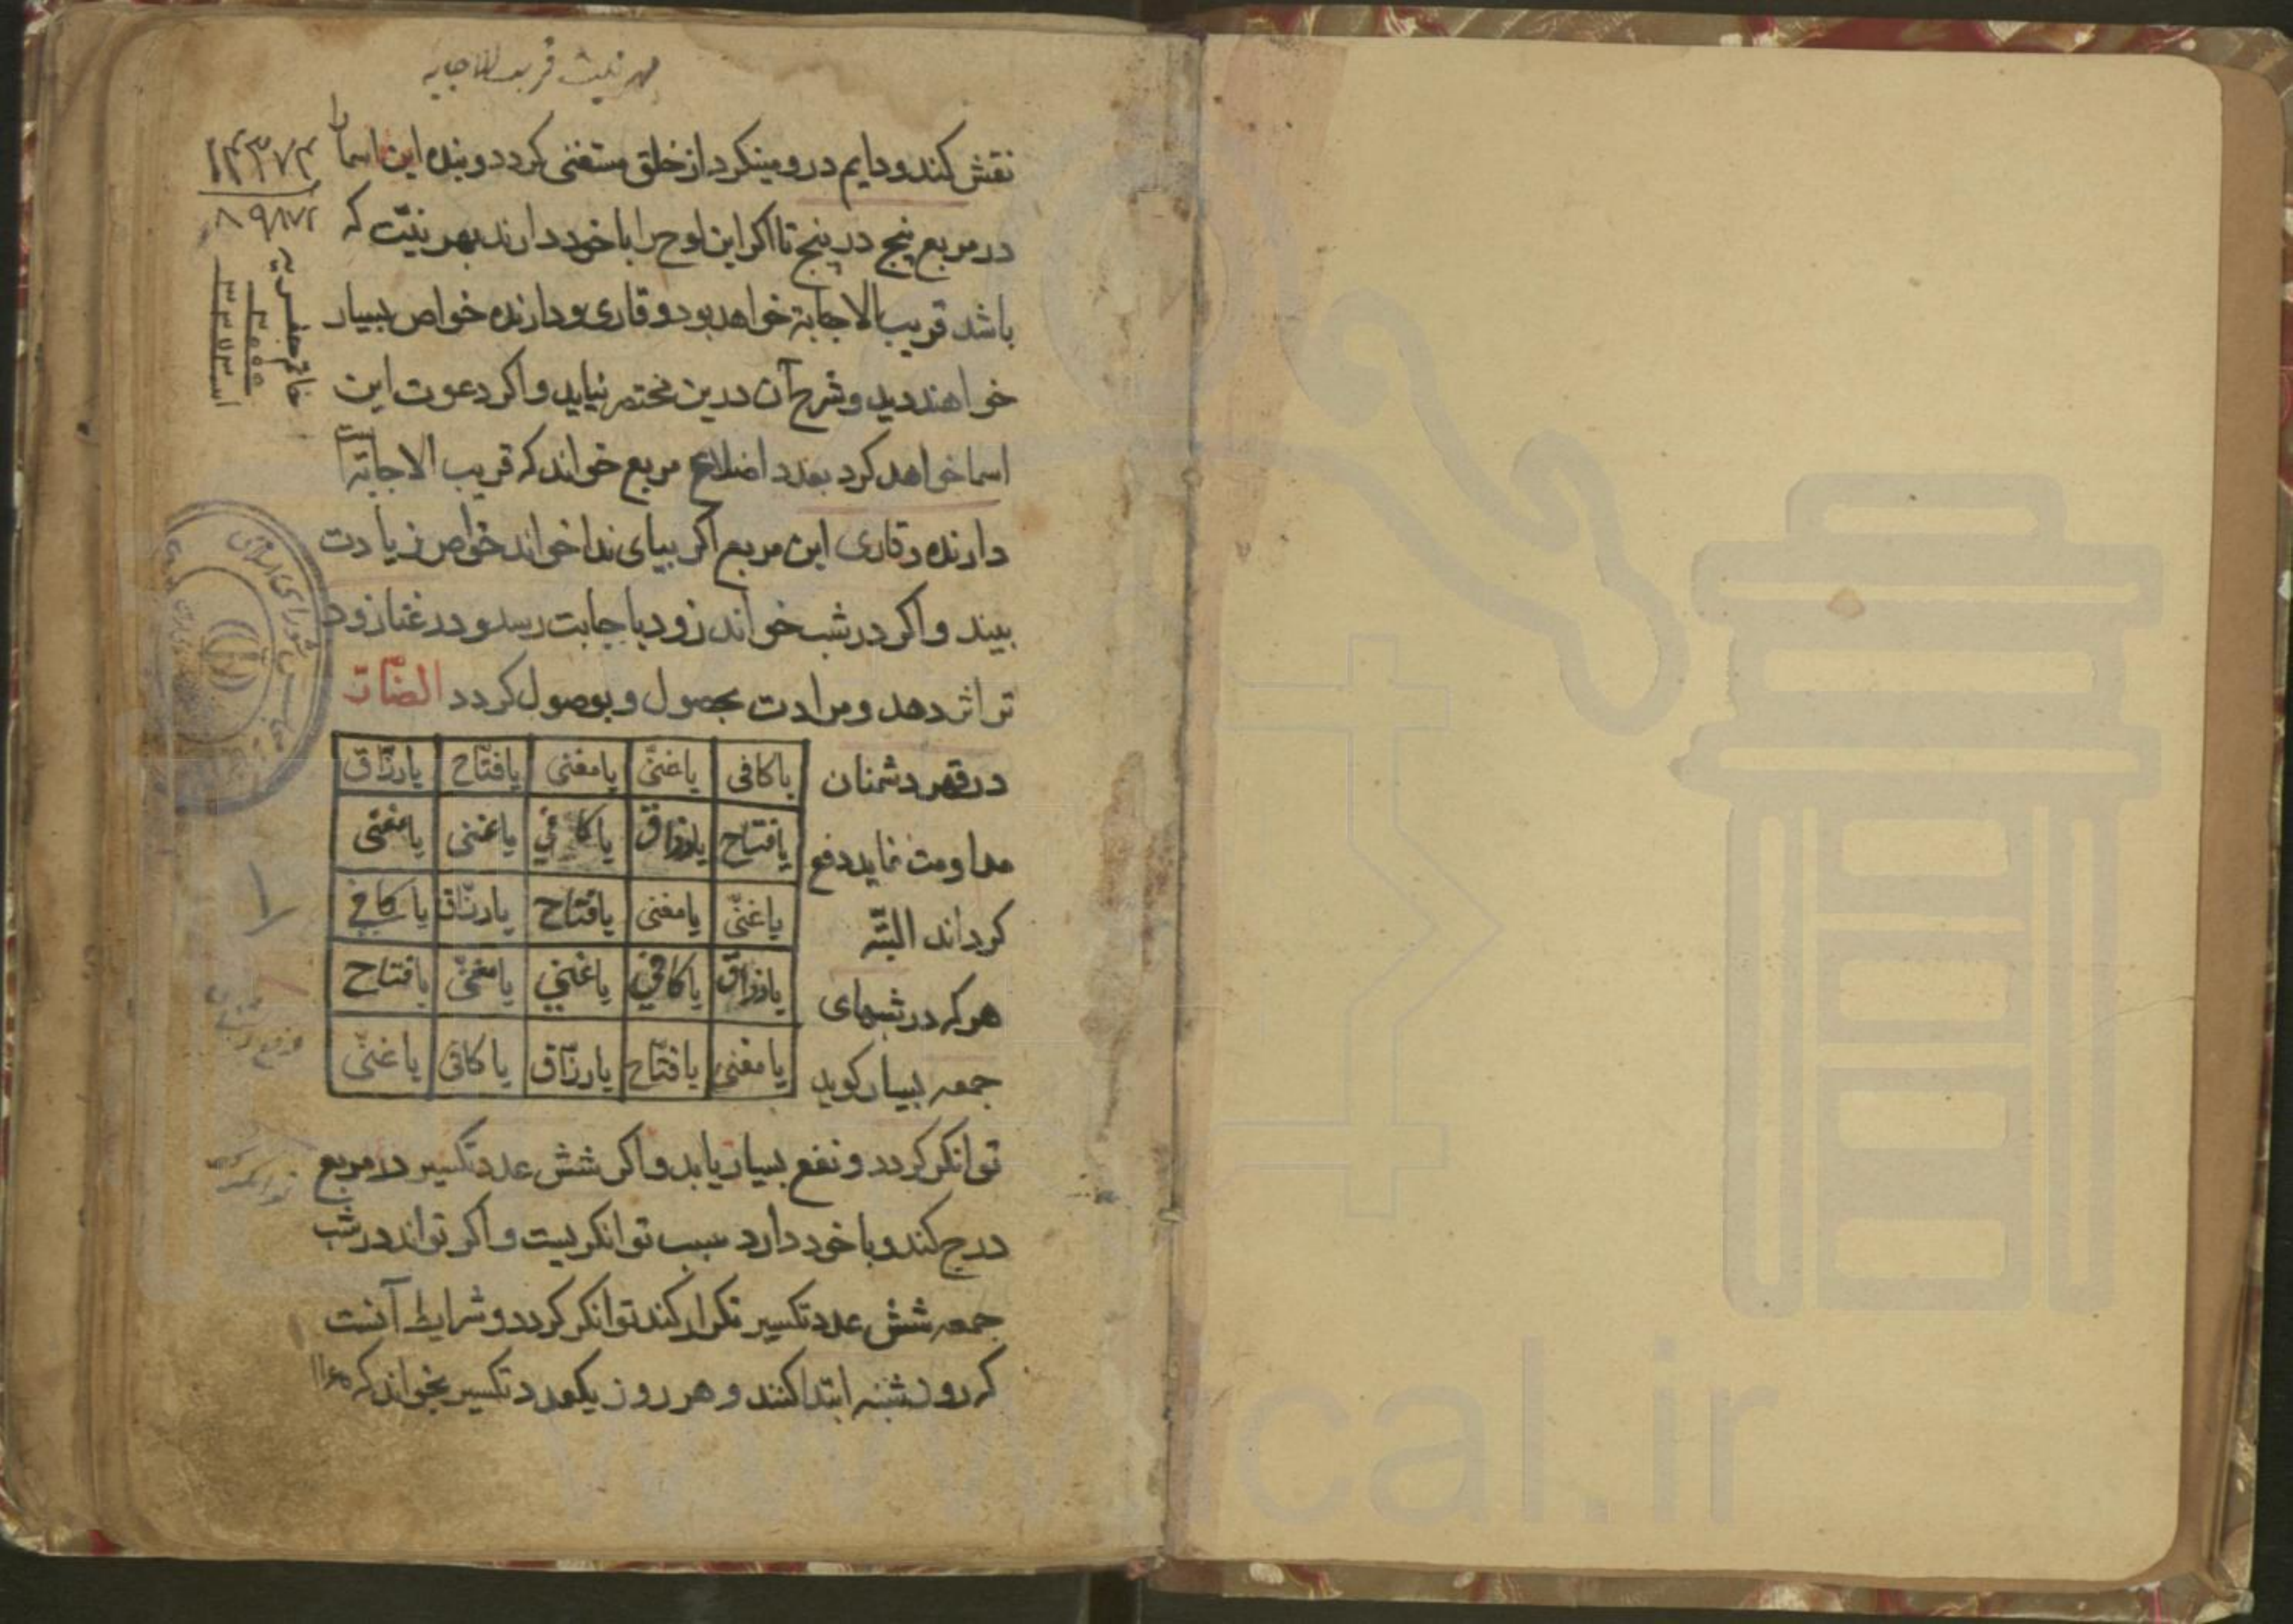 بهر نیت قریب الاجابه
نقش کند و دایم در و مینکرد از خلق مستغنی کردد و بنده این اسما را
در مربع پنج در پنج تا اکر این لوح را با خود دارند بهر نیّت که
باشد قریب الاجابة خواهد بود و قاری و دارنده خواص بسیار
خواهند دید و شرح آن درین مختصر نیاید و اکر دعوت این
اسما خواهد کرد بعدد اضلاع مربع خواند که قریب الاجابة است
دارنده و قاری این مربع اکر بیای ندا خواند خواص زیادت
بیند و اکر در شب خواند زود باجابت رسد و در غنا زود
تر اثر دهد و مرادت بحصول و بوصول کردد الضّارّ
در قهر دشمنان
مداومت نماید دفع
کرداند البتّه
هر که در شبهای
جمعه بسیار کوید
یا کافی یا غنیّ یا مغنی یا فتّاح یا رزّاق
یا فتاح یا رزاق یا کافی یا غنی یا مغنی
یا غنیّ یا مغنی یا فتّاح یا رزّاق یا کافی
یا رزاق یا کافی یا غنی یا مغنی یا فتاح
یا مغنی یا فتّاح یا رزّاق یا کافی یا غنیّ
توانکر کردد و نفع بسیار یابد و اکر شش عدد تکسیر در مربع
درج کند و با خود دارد سبب توانکریست و اکر تواند در شب
جمعه شش عدد تکسیر تکرار کند توانکر کردد و شرایط آنست
که روز شنبه ابتدا کنند و هر روز یکعدد تکسیر بخواند که
توانکری
مجلس شورای اسلامی
www.ical.ir